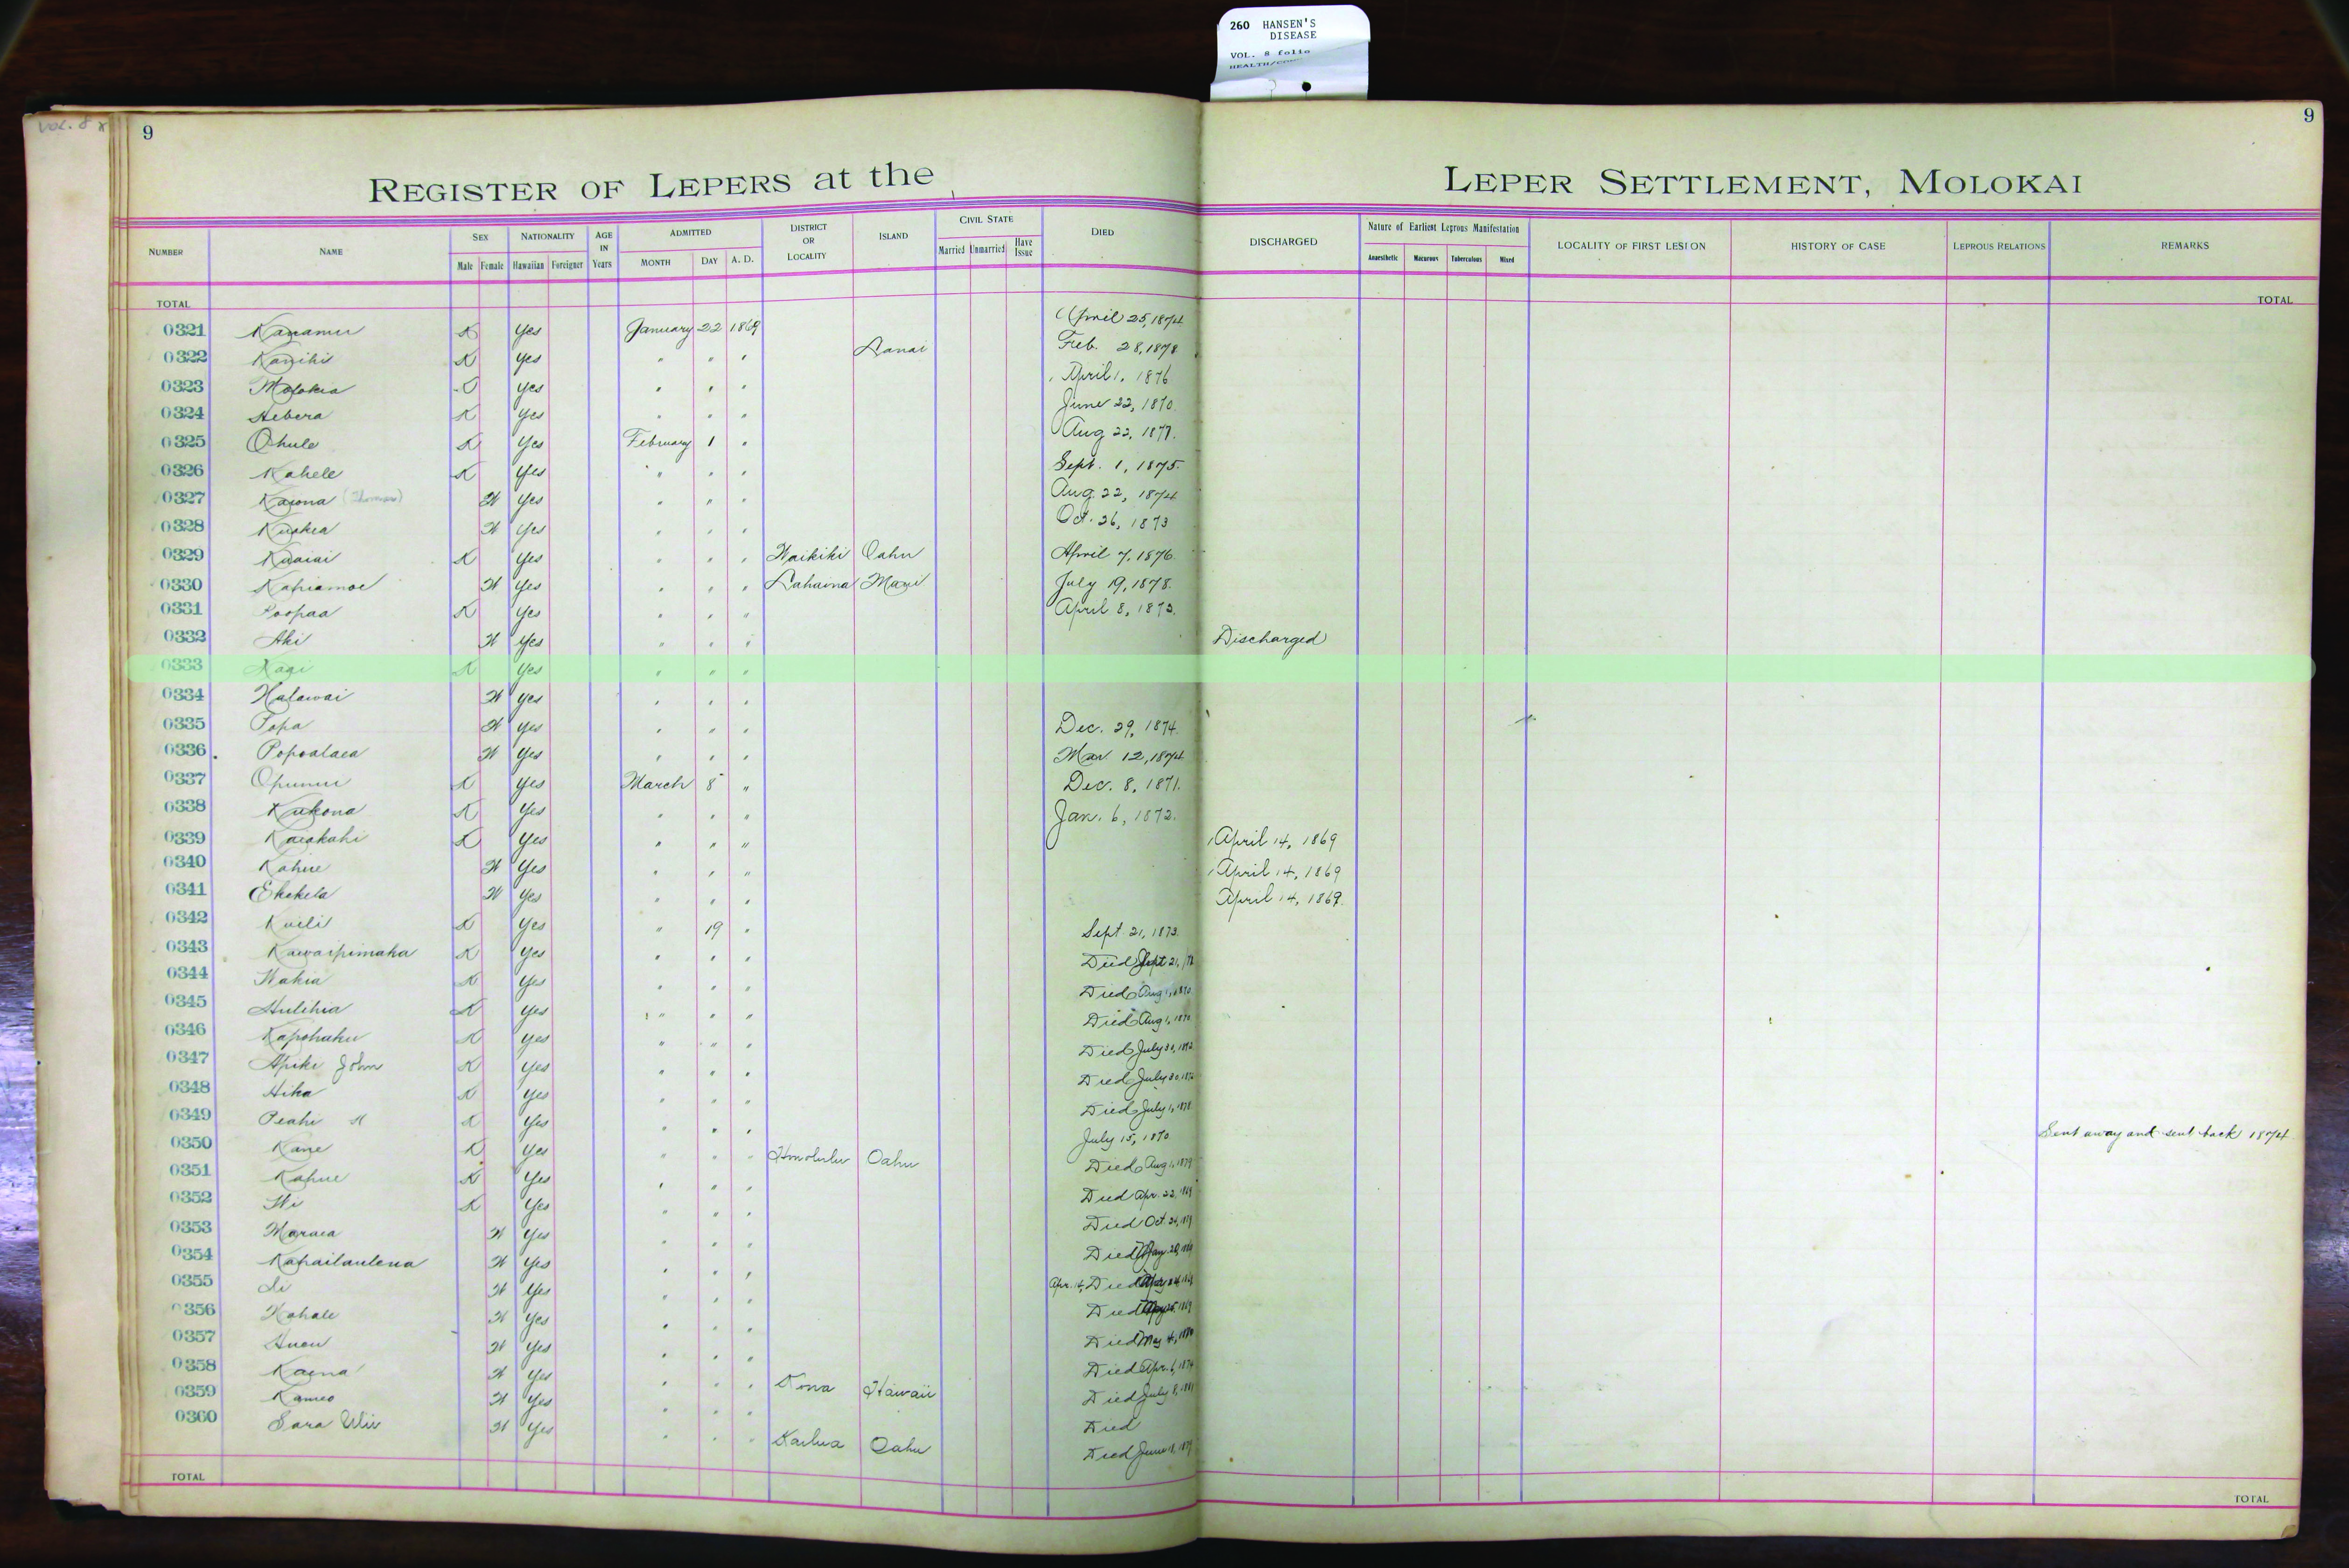 260 HANSEN'S
DISEASE
VOL. 8 folio
VOL. 8
9 9
REGISTER OF LEPERS at the LEPER SETTLEMENT, MOLOKAI
NUMBER NAME SEX Male Female NATIONALITY Hawaiian Foreigner AGE IN Years ADMITTED MONTH DAY A. D. DISTRICT OR LOCALITY ISLAND CIVIL STATE Married Unmarried Have Issue DIED DISCHARGED Nature of Earliest Leprous Manifestation Anaesthetic Macurous Tuberculous Mixed LOCALITY OF FIRST LESION HISTORY OF CASE LEPROUS RELATIONS REMARKS
TOTAL TOTAL
0321 Kanamu K Yes January 22 1869 April 25, 1874
0322 Kanihi K Yes " " " Lanai Feb. 28, 1878
0323 Molokia Yes " " " April 1, 1876
0324 Hebera K Yes " " " June 22, 1870
0325 Ohule K Yes February 1 " Aug 22, 1877.
0326 Kahele K Yes " " " Sept. 1, 1875.
0327 Kaiona (Thomas) W Yes " " " Aug. 22, 1874
0328 W Yes " " " Oct. 26, 1873
0329 Kuaiai K Yes " " " Waikiki Oahu April 7, 1876.
0330 Kapiamoe W Yes " " " Lahaina Maui July 19, 1878.
0331 Poopaa K Yes " " " April 8, 1873.
0332 Aki W Yes " " " Discharged
0333 K Yes " " "
0334 Halawai W Yes " " "
0335 Popa W Yes " " " Dec. 29, 1874.
0336 Popoalaea W Yes " " " Mar 12, 1874
0337 Opunui K Yes March 8 " Dec. 8, 1871.
0338 Kukona K Yes " " " Jan. 6, 1872.
0339 Kaiakahi K Yes " " " April 14, 1869
0340 Kahue W Yes " " " April 14, 1869
0341 Ekekela W Yes " " " April 14, 1869.
0342 Kuili K Yes " 19 " Sept. 21, 1873.
0343 Kawaipimaka K Yes " " " Died Sept 21,
0344 Wakia K Yes " " " Died Aug 1, 1870
0345 Hulihia K Yes " " " Died Aug 1, 1870
0346 Kapohaku K Yes " " " Died July 30,
0347 Apiki John K Yes " " " Died July 30,
0348 Hika K Yes " " " Died July 1, 1878
0349 Peahi K Yes " " " July 15, 1870. Sent away and sent back 1874.
0350 Kane K Yes " " " Honolulu Oahu Died Aug 1, 1879
0351 Kahue K Yes " " " Died Apr. 22, 1869
0352 K Yes " " " Died Oct.
0353 Maraea W Yes " " " Died
0354 Kahailaulena W Yes " " " Apr. 14, Died
0355 W Yes " " " Died
0356 Kahale W Yes " " " Died May 4,
0357 W Yes " " " Died Apr. 6, 1874
0358 Kaena W Yes " " " Kona Hawaii Died July 8, 1881
0359 Kameo W Yes " " " Died
0360 Sara W Yes " " " Kailua Oahu Died June
TOTAL TOTAL